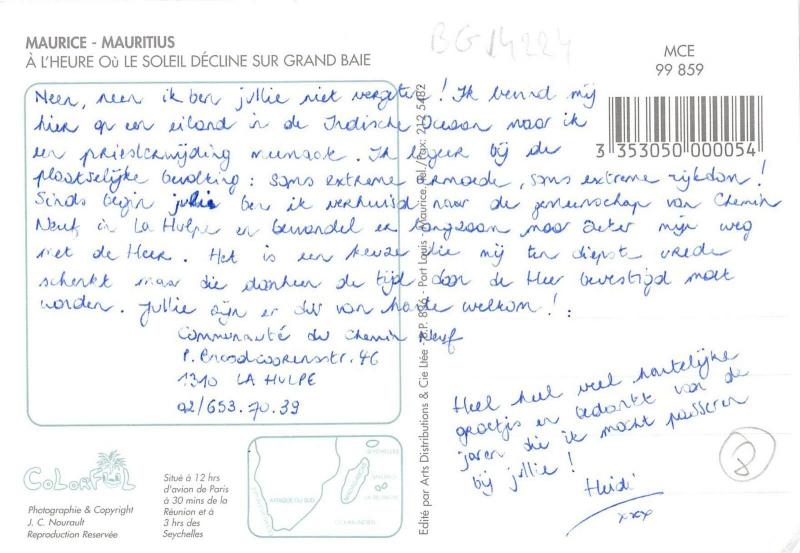 BG 14224
MAURICE - MAURITIUS
À L'HEURE Où LE SOLEIL DÉCLINE SUR GRAND BAIE
MCE
99 859
3 353050 000054
Neen, neen ik ben jullie niet vergeten! Ik bevind mij
hier op een eiland in de Indische Oceaan waar ik
een priesterwijding meemaak. Ik logeer bij de
plaatselijke bevolking: soms extreme armoede, soms extreme rijkdom!
Sinds begin julie ben ik verhuisd naar de gemeenschap van Chemin
Neuf in La Hulpe en bewandel er langzaam maar zeker mijn weg
met de Heer. Het is een keuze die mij ten diepst vrede
schenkt maar die doorheen de tijd door de Heer bevestigd moet
worden. Jullie zijn er dus van harte welkom!
Communauté du Chemin Neuf
P. 46
1310 LA HULPE
02/653.70.39
Heel heel veel hartelijke
groetjes en bedankt voor de
jaren die ik mocht passeren
bij jullie!
Heidi
xxx
COLORFUL
Photographie & Copyright
J. C. Nourault
Reproduction Reservée
Situé à 12 hrs
d'avion de Paris
à 30 mins de la
Réunion et à
3 hrs des
Seychelles
SEYCHELLES
MADAGASCAR
LA REUNION
AFRIQUE DU SUD
OCEAN INDIEN
Edité par Arts Distributions & Cie Ltée - B.P. 836 - Port Louis - Maurice. Tel/Fax: 212 5482